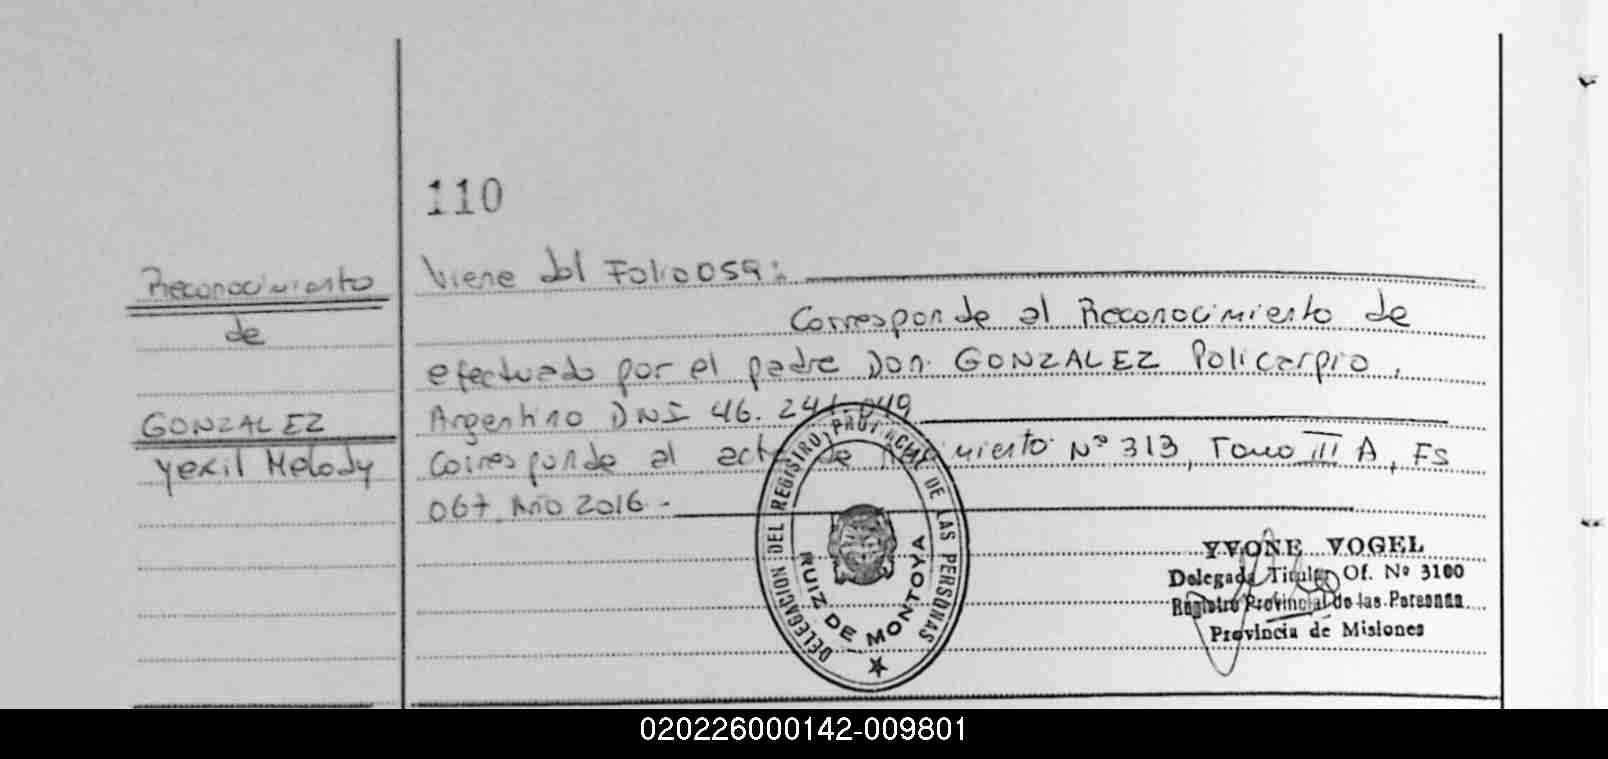 110
Viene del Folio 059:
Reconocimiento
de
GONZALEZ
Yexil Melody
Corresponde al Reconocimiento de
efectuado por el padre Don. GONZALEZ Policarpio,
Argentino DNI 46. 241.049
Corresponde al acta de Nacimiento Nº 313, Tomo III A, Fs
067 Año 2016 -
DELEGACION DEL REGISTRO PROVINCIAL DE LAS PERSONAS
RUIZ DE MONTOYA
YVONE VOGEL
Delegada Titular Of. Nº 3100
Registro Provincial de las Personas
Provincia de Misiones
020226000142-009801